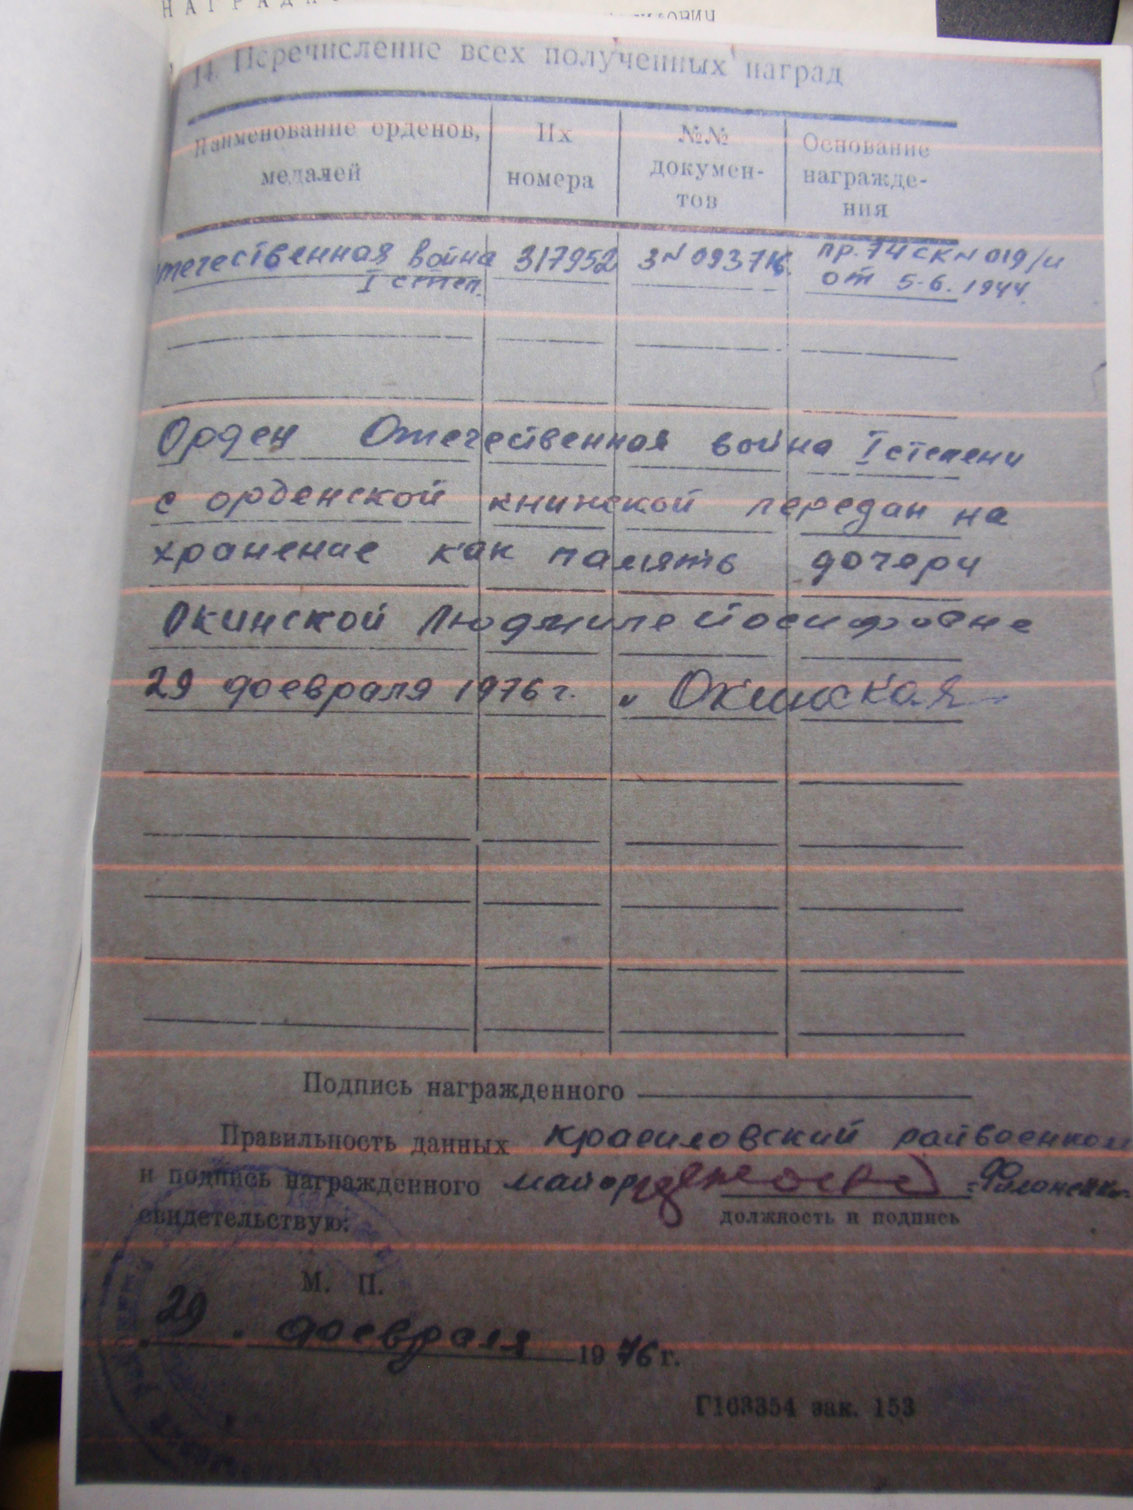 14. Перечисление всех полученных наград
Наименование орденов, медалей
Их номера
№№ докумен-тов
Основание награжде-ния
Отечественная война 317952 пр. 74 СК N 019/н
I степ. от 5.6.1944
Орден Отечественная война I степени
с орденской книжкой передан на
хранение как память дочери
Окинской Людмиле Йосифовне
29 февраля 1976 г. Окинская
Подпись награжденного
Правильность данных Красиловский райвоенком
и подпись награжденного майор
свидетельствую:
должность и подпись
М. П.
29 февраля 1976 г.
Г103354 зак. 153